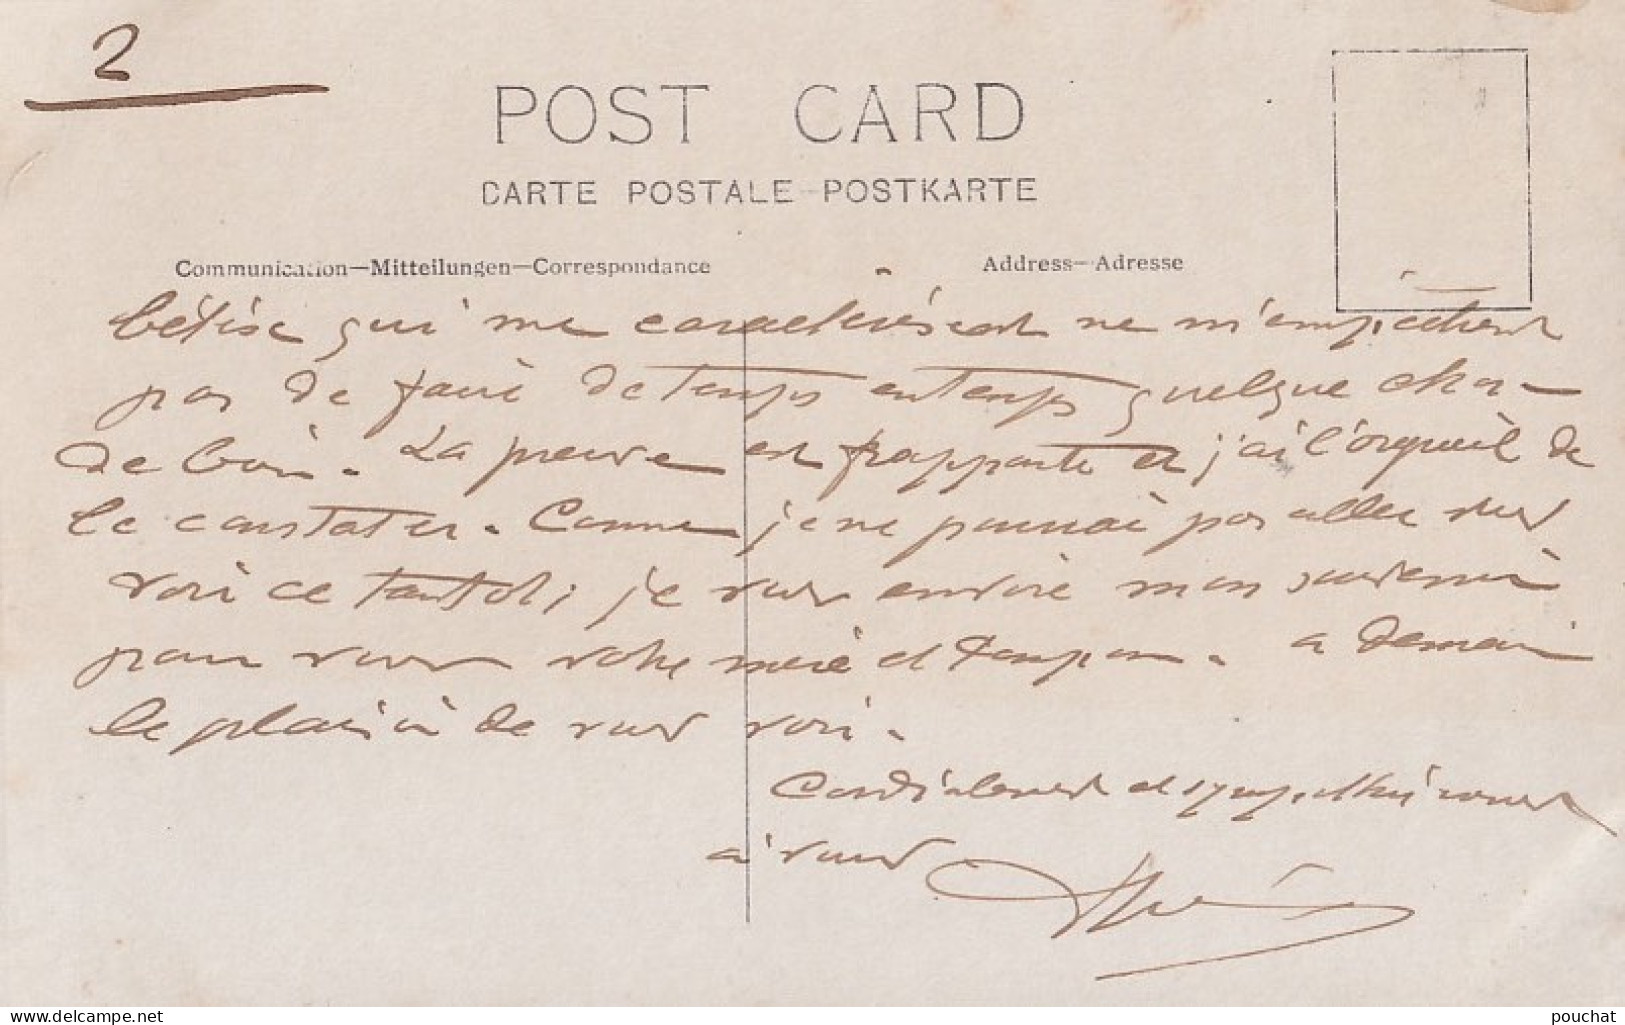 2
POST CARD
CARTE POSTALE-POSTKARTE
Communication—Mitteilungen—Correspondance
Address—Adresse
bêtise qui me caractérisent ne m'empêchent
pas de faire de temps en temps quelque chose
de bon. La preuve est frappante et j'ai l'orgueil de
le constater. Comme je ne pourrai pas aller vous
voir ce tantôt, je vous envoie mon souvenir
pour vous votre mère et
a demain
le plaisir de vous voir.
Cordialement et sympathiquement
à vous
www.delcampe.net
pouchat